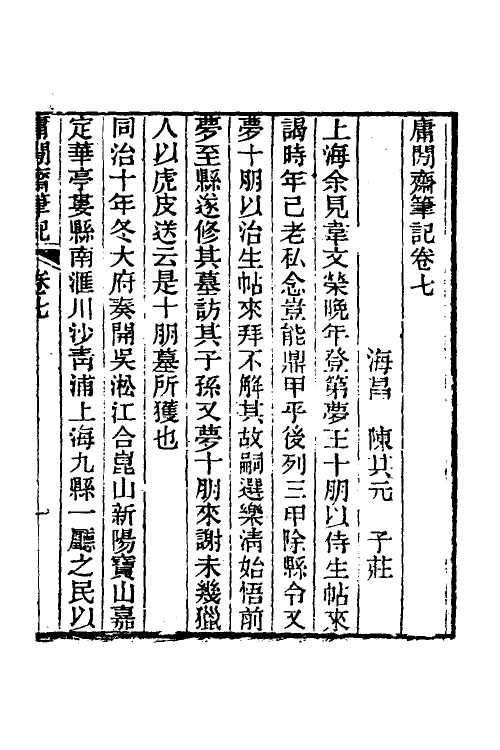 庸閒齋筆記卷七
海昌　陳其元　子莊
上海余見韋文榮晚年登第夢王十朋以侍生帖來
謁時年已老私念豈能鼎甲乎後列三甲除縣令又
夢十朋以治生帖來拜不解其故嗣選樂清始悟前
夢至縣遂修其墓訪其子孫又夢十朋來謝未幾獵
人以虎皮送云是十朋墓所獲也
同治十年冬大府奏開吳淞江合崑山新陽寶山嘉
定華亭婁縣南滙川沙靑浦上海九縣一廳之民以
庸閒齋筆記　卷七　一